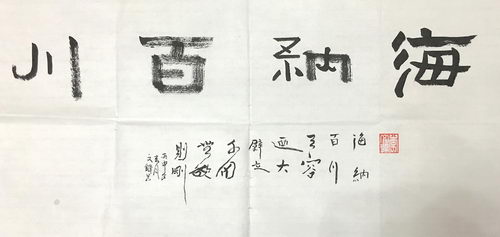 海納百川
海納
百川
有容
大
壁立
千仞
無欲
則剛
丙申
月
文